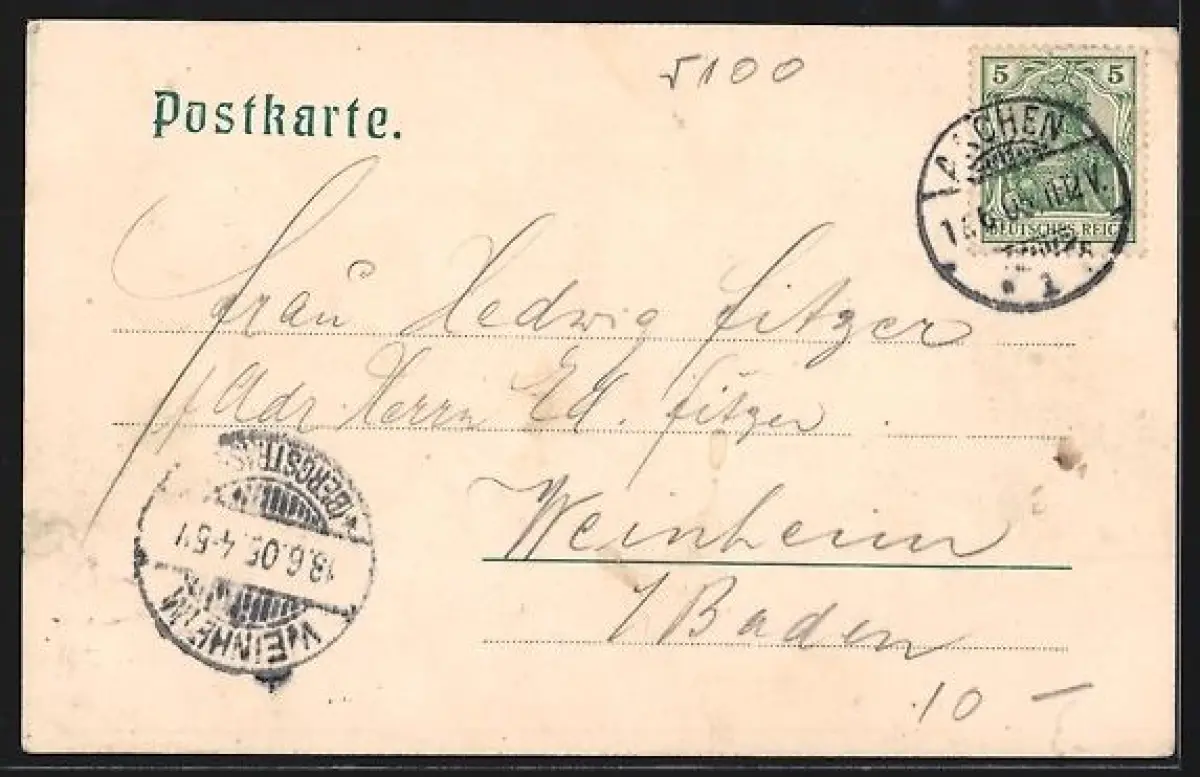 5100
5 5
Postkarte.
AACHEN
11-12 V.
DEUTSCHES REICH
1
Frau Hedwig Fitzer
Adr. Herrn Ed. Fitzer
Weinheim
/Baden
(BERGSTR.
18.6.05. 4-5
WEINHEIM
10 —